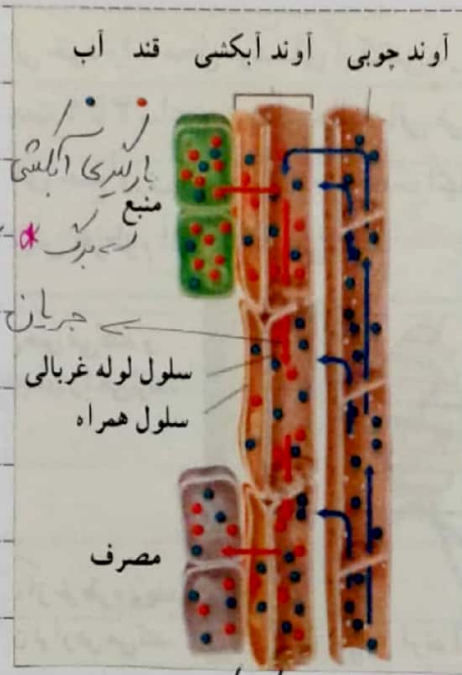 آوند چوبی آوند آبکشی قند آب
بارگیری آبکشی
منبع
برگ *
جریان
سلول لوله غربالی
سلول همراه
مصرف